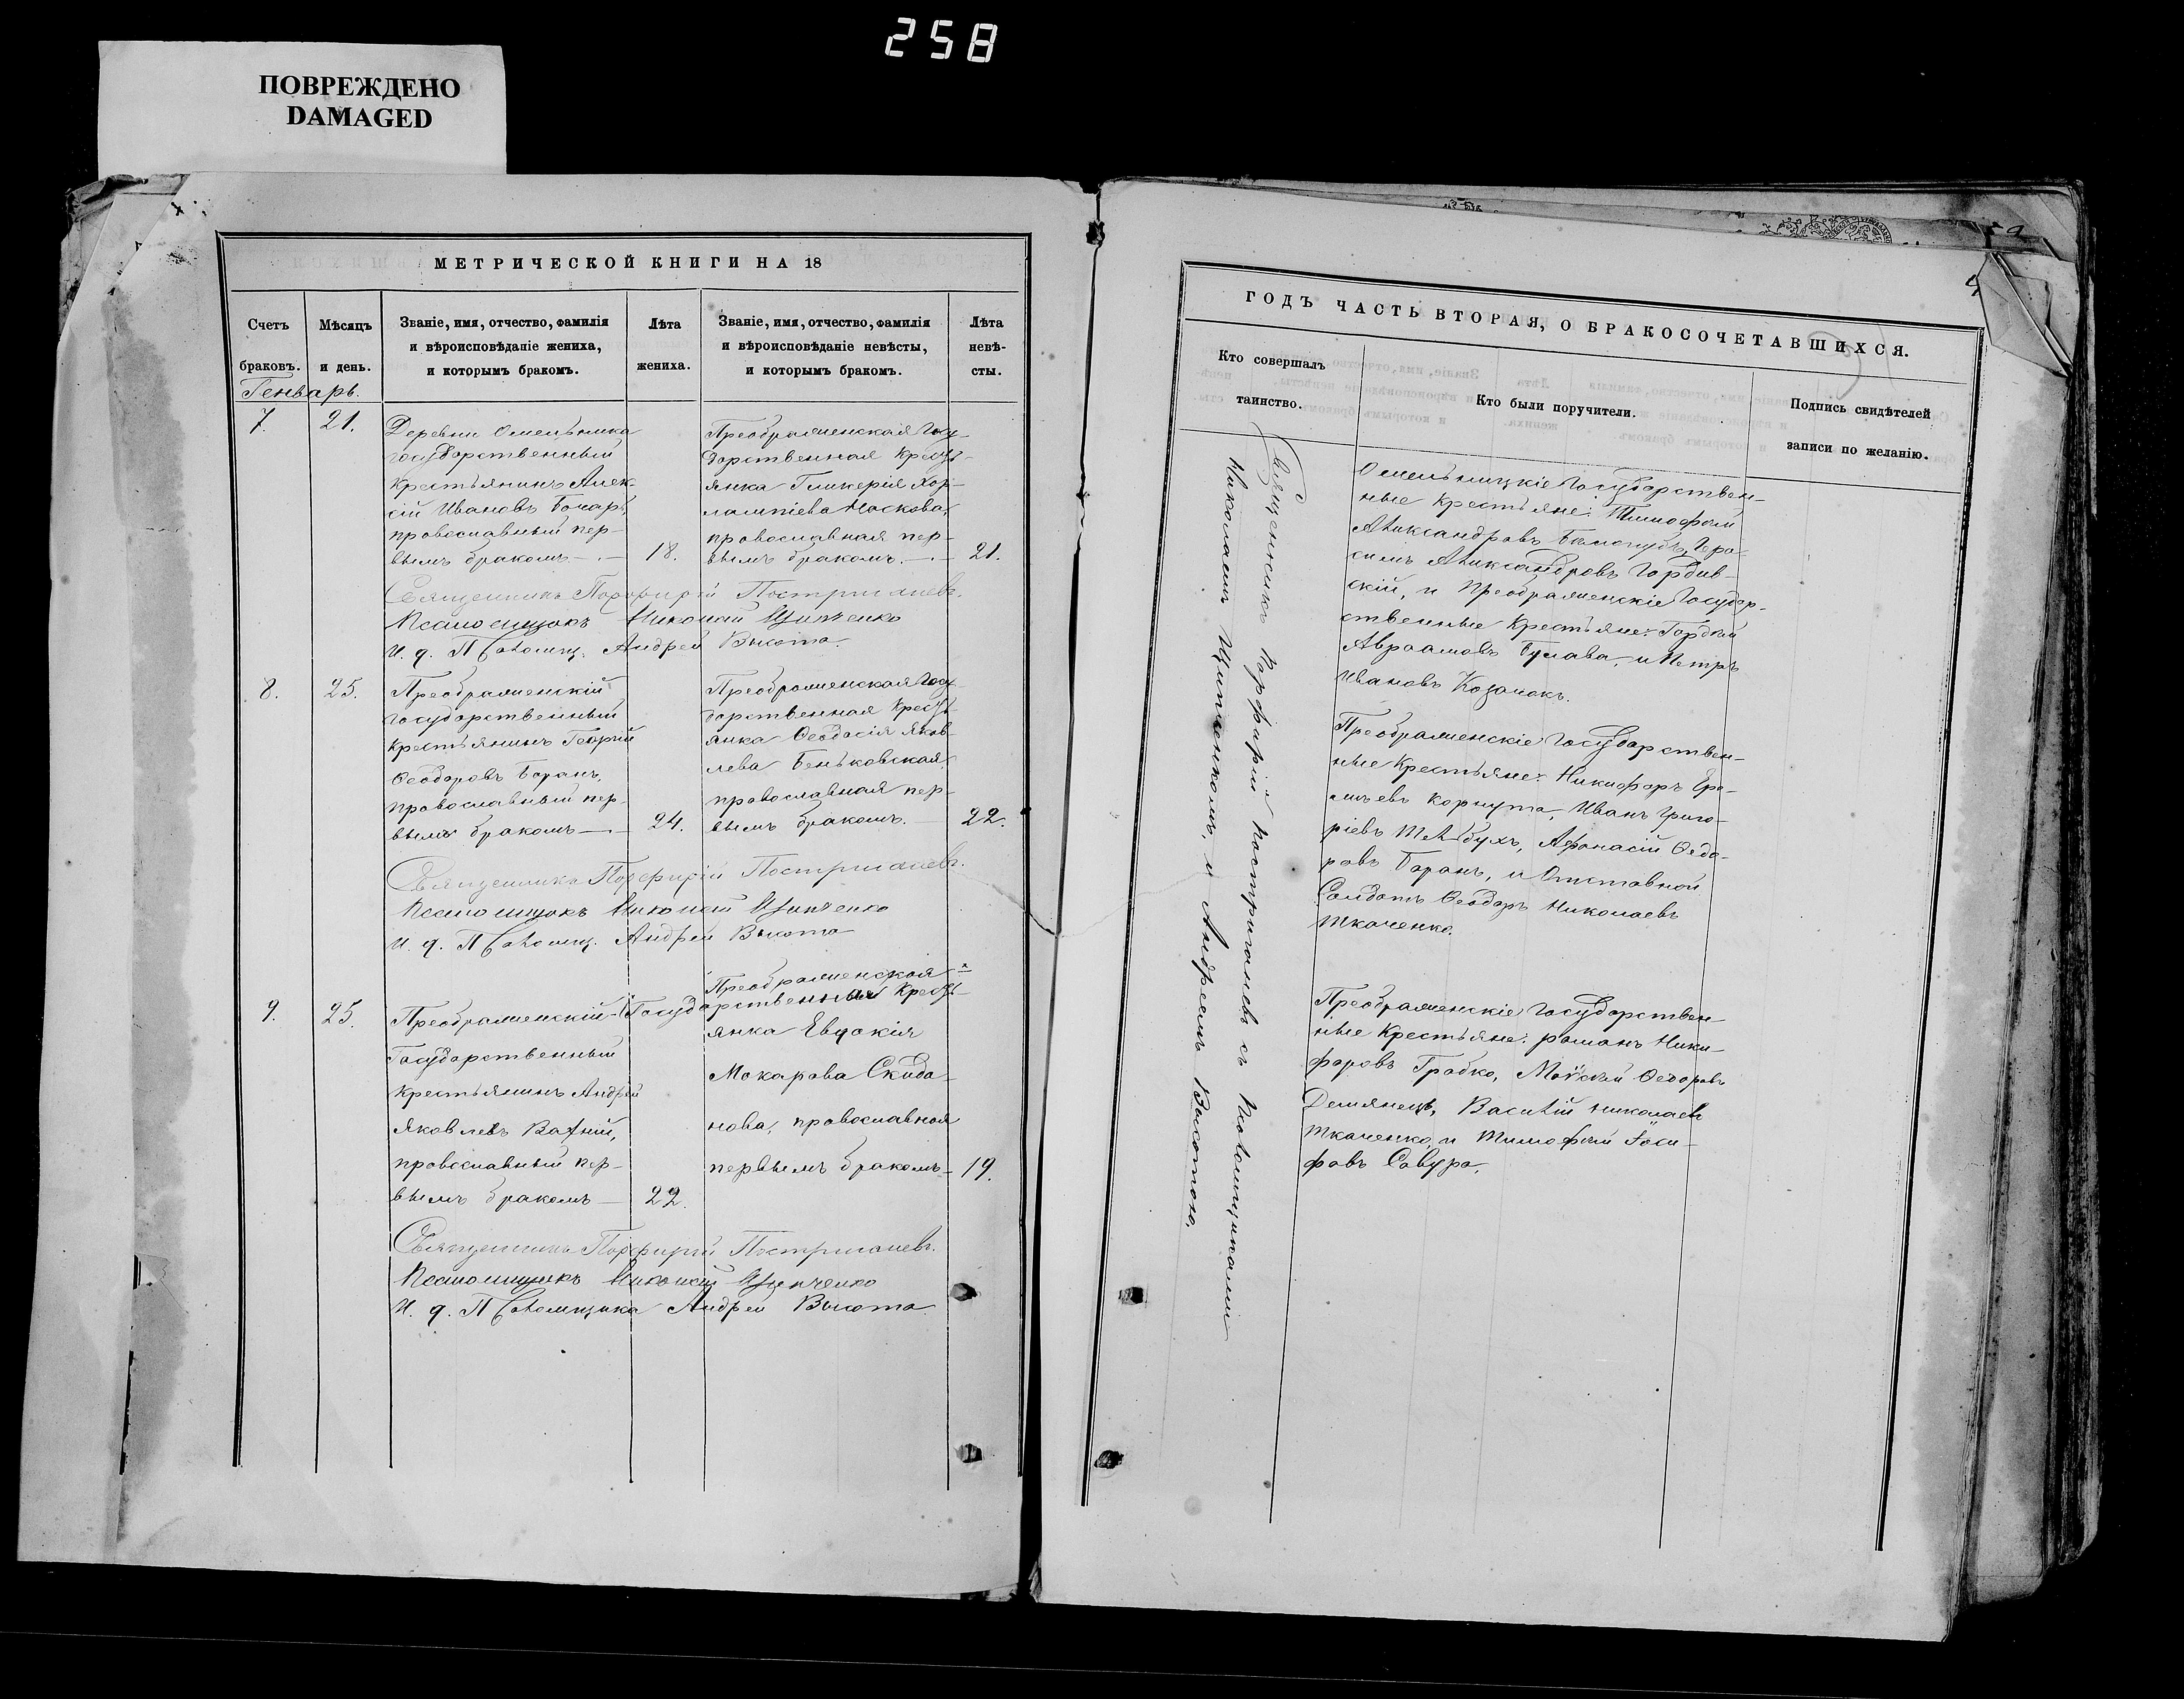 258
ПОВРЕЖДЕНО
DAMAGED
МЕТРИЧЕСКОЙ КНИГИ НА 18
Счетъ браковъ.
Мѣсяцъ и день.
Званіе, имя, отчество, фамилія
и вѣроисповѣданіе жениха,
и которымъ бракомъ.
Лѣта
жениха.
Званіе, имя, отчество, фамилія
и вѣроисповѣданіе невѣсты,
и которымъ бракомъ.
Лѣта
невѣ-
сты.
Генварь.
7.
21.
Деревни Омельника
государственный
крестьянинъ Алек-
сій Ивановъ Бочаръ,
православный пер-
вымъ бракомъ
18.
Преображенская Госу-
дарственная крестъ-
янка Гликерія Хар-
лампіева Носкова,
православная пер-
вымъ бракомъ.
21.
Священникъ Порфирій Постригачевъ.
Псаломщикъ Николай
И. д. Псаломщ. Андрей Высота.
8.
25.
Преображенскій
государственный
крестьянинъ Георгій
Ѳеодоровъ Баранъ,
православный пер-
вымъ бракомъ
24.
Преображенская Госу-
дарственная крестъ-
янка Ѳеодосія Яков-
лева Беньковская,
православная пер-
вымъ бракомъ.
22.
Священникъ Порфирій Постригачевъ.
Псаломщикъ Николай
И. д. Псаломщ. Андрей Высота
9.
25.
Преображенскій
Государственный
крестьянинъ Андрей
Яковлевъ
православный пер-
вымъ бракомъ
22.
Преображенская
Государственная крестъ-
янка Евдокія
Макарова Скида-
нова, православная
первымъ бракомъ
19.
Священникъ Порфирій Постригачевъ.
Псаломщикъ Николай
И. д. Псаломщика Андрей Высота
ГОДЪ ЧАСТЬ ВТОРАЯ, О БРАКОСОЧЕТАВШИХСЯ.
Кто совершалъ
таинство.
Кто были поручители.
Подпись свидѣтелей
записи по желанію.
Священникъ Порфирій Постригачевъ съ Псаломщиками
Николаемъ и Андреемъ Высотою.
Омельницкіе Государствен-
ные крестьяне: Тимофей
Александровъ Гера-
симъ Александровъ Гордив-
скій, и Преображенскіе Государ-
ственные крестьяне: Гордѣй
Авраамовъ Булава, и Петръ
Ивановъ Козачокъ.
Преображенскіе Государствен-
ные крестьяне: Никифоръ Ере-
мѣевъ Корнута, Иванъ Григо-
ріевъ Афанасій Ѳедо-
ровъ Баранъ, и Отставной
Солдатъ Ѳеодоръ Николаевъ
Ткаченко.
Преображенскіе Государствен-
ные крестьяне: Романъ Ники-
форовъ Грабко, Моѵсей Ѳедоровъ
Демянецъ, Василій Николаевъ
Ткаченко, и Тимофей Іоси-
фовъ Савура.